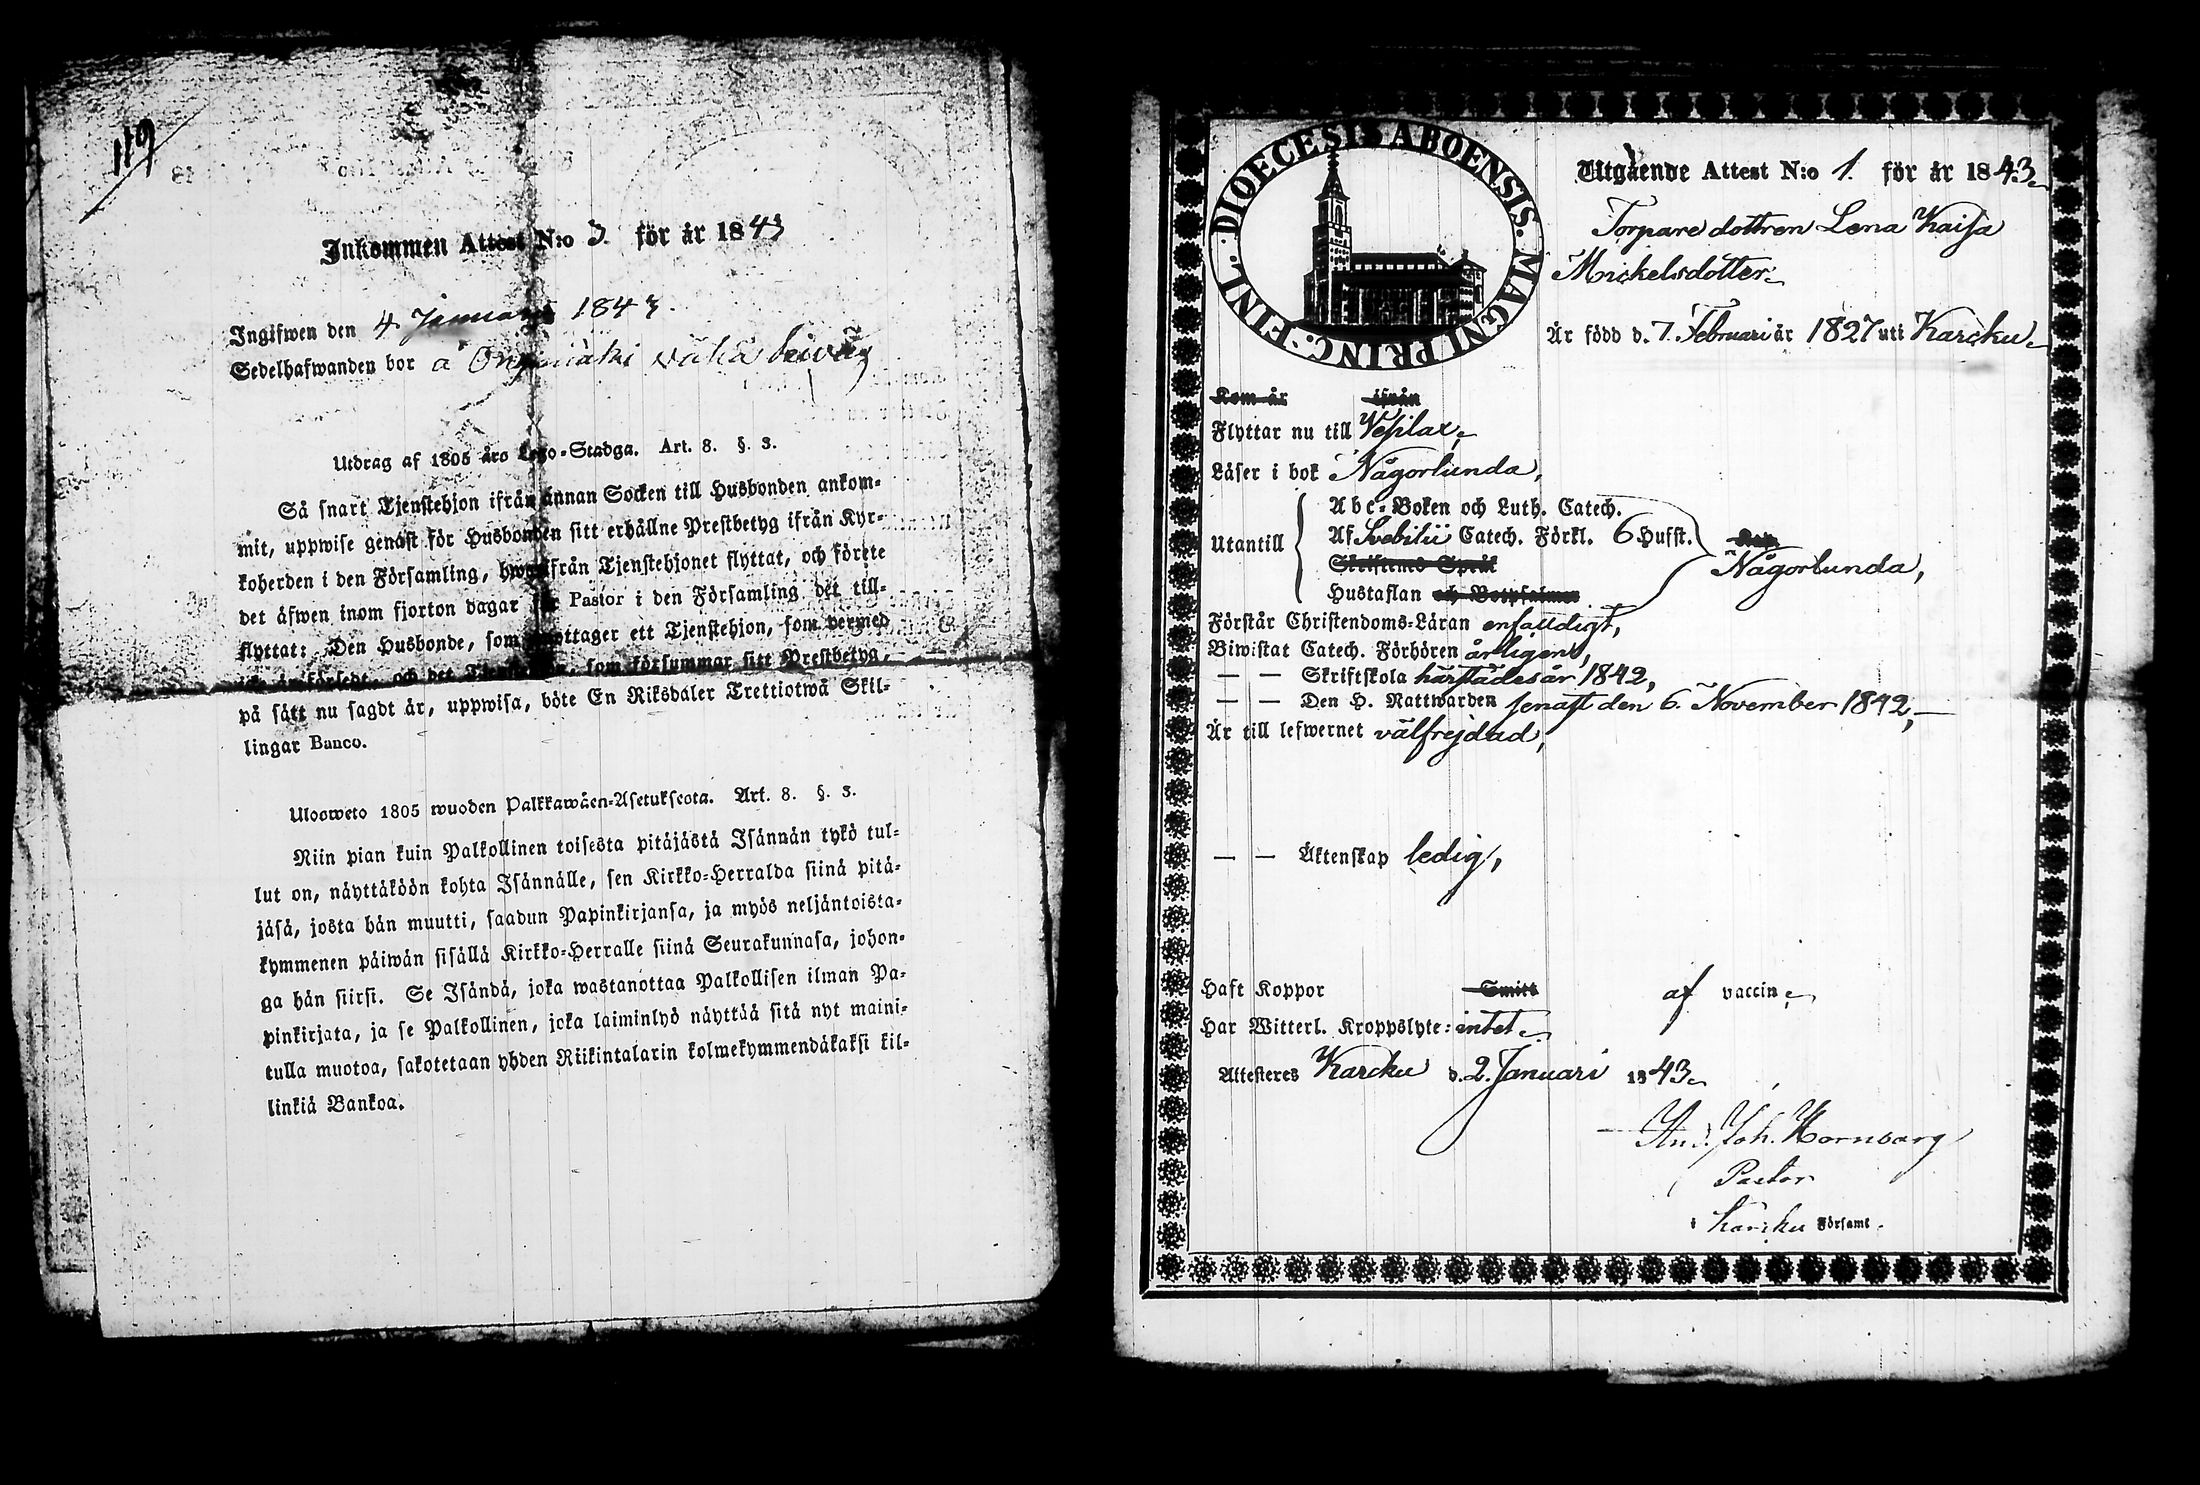 119
Inkommen Attest N:o 3. för år 1843
Ingifwen den 4 Januari 1843.
Sedelhafwanden bor å
Utdrag af 1805 års Lego-Stadga. Art. 8. §. 3.
Så snart Tjenstehjon ifrån annan Socken till Husbonden ankom-
mit, uppwise genast för Husbonden sitt erhållne Prestbetyg ifrån Kyr-
koherden i den Församling, hwarifrån Tjenstehjonet flyttat, och förete
det äfwen inom fjorton dagar för Pastor i den Församling det till-
flyttat: Den Husbonde, som mottager ett Tjenstehjon, som dermed
icke är försedt, och det Tjenstehjon, som försummar sitt Prestbetyg,
på sätt nu sagdt är, uppwisa, böte En Riksdaler Trettiotwå Skil-
lingar Banco.
Ulosweto 1805 wuoden Palkkawäen-Asetuksesta. Art. 8. §. 3.
Niin pian kuin Palkollinen toisesta pitäjästä Isännän tykö tul-
lut on, näyttäköön kohta Isännälle, sen Kirkko-Herralda siinä pitä-
jäsä, josta hän muutti, saadun Papinkirjansa, ja myös neljäntoista-
kymmenen päiwän sisällä Kirkko-Herralle siinä Seurakunnasa, johon-
ga hän siirsi. Se Isändä, joka wastanottaa Palkollisen ilman Pa-
pinkirjata, ja se Palkollinen, joka laiminlyö näyttää sitä nyt maini-
tulla muotoa, sakotetaan yhden Riikintalarin kolmekymmendäkaksi kil-
linkiä Bankoa.
DIOECESIS ABOENSIS. MAGNI PRINC: FINL.
Utgående Attest N:o 1. för år 1843
Torpare dottren Lena Kaisa
Mickelsdotter
Är född d. 7. Februari år 1827 uti Karcku
Kom år ifrån
Flyttar nu till Vesilax
Läser i bok Någorlunda,
Utantill
Abc-Boken och Luth. Catech.
Af Svebilii Catech. Förkl. 6 Hufst.
Skriftenes Språk
Hustaflan och Botpsalmer
Någorlunda,
Förstår Christendoms-Läran enfaldigt,
Biwistat Catech. Förhören årligen,
— — Skriftskola härstädes år 1842,
— — Den H. Nattwarden senast den 6. November 1842,
Är till lefwernet välfrejdad,
— — Äktenskap ledig,
Haft Koppor Smitt af vaccin
Har Witterl. Kroppslyte: intet
Attesteres Karcku d. 2. Januari 1843
And. Joh. Hornborg
Pastor
i Karcku Församl.